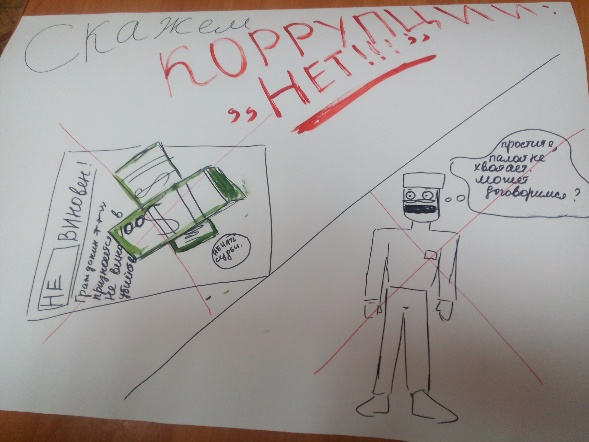 Скажем
КОРРУПЦИИ:
„НЕТ!!!"
НЕ ВИНОВЕН!
Гражданин ***
признается в
не вино
убийств
печать
судьи.
простите,
палок не
хватает
может
договоримся?